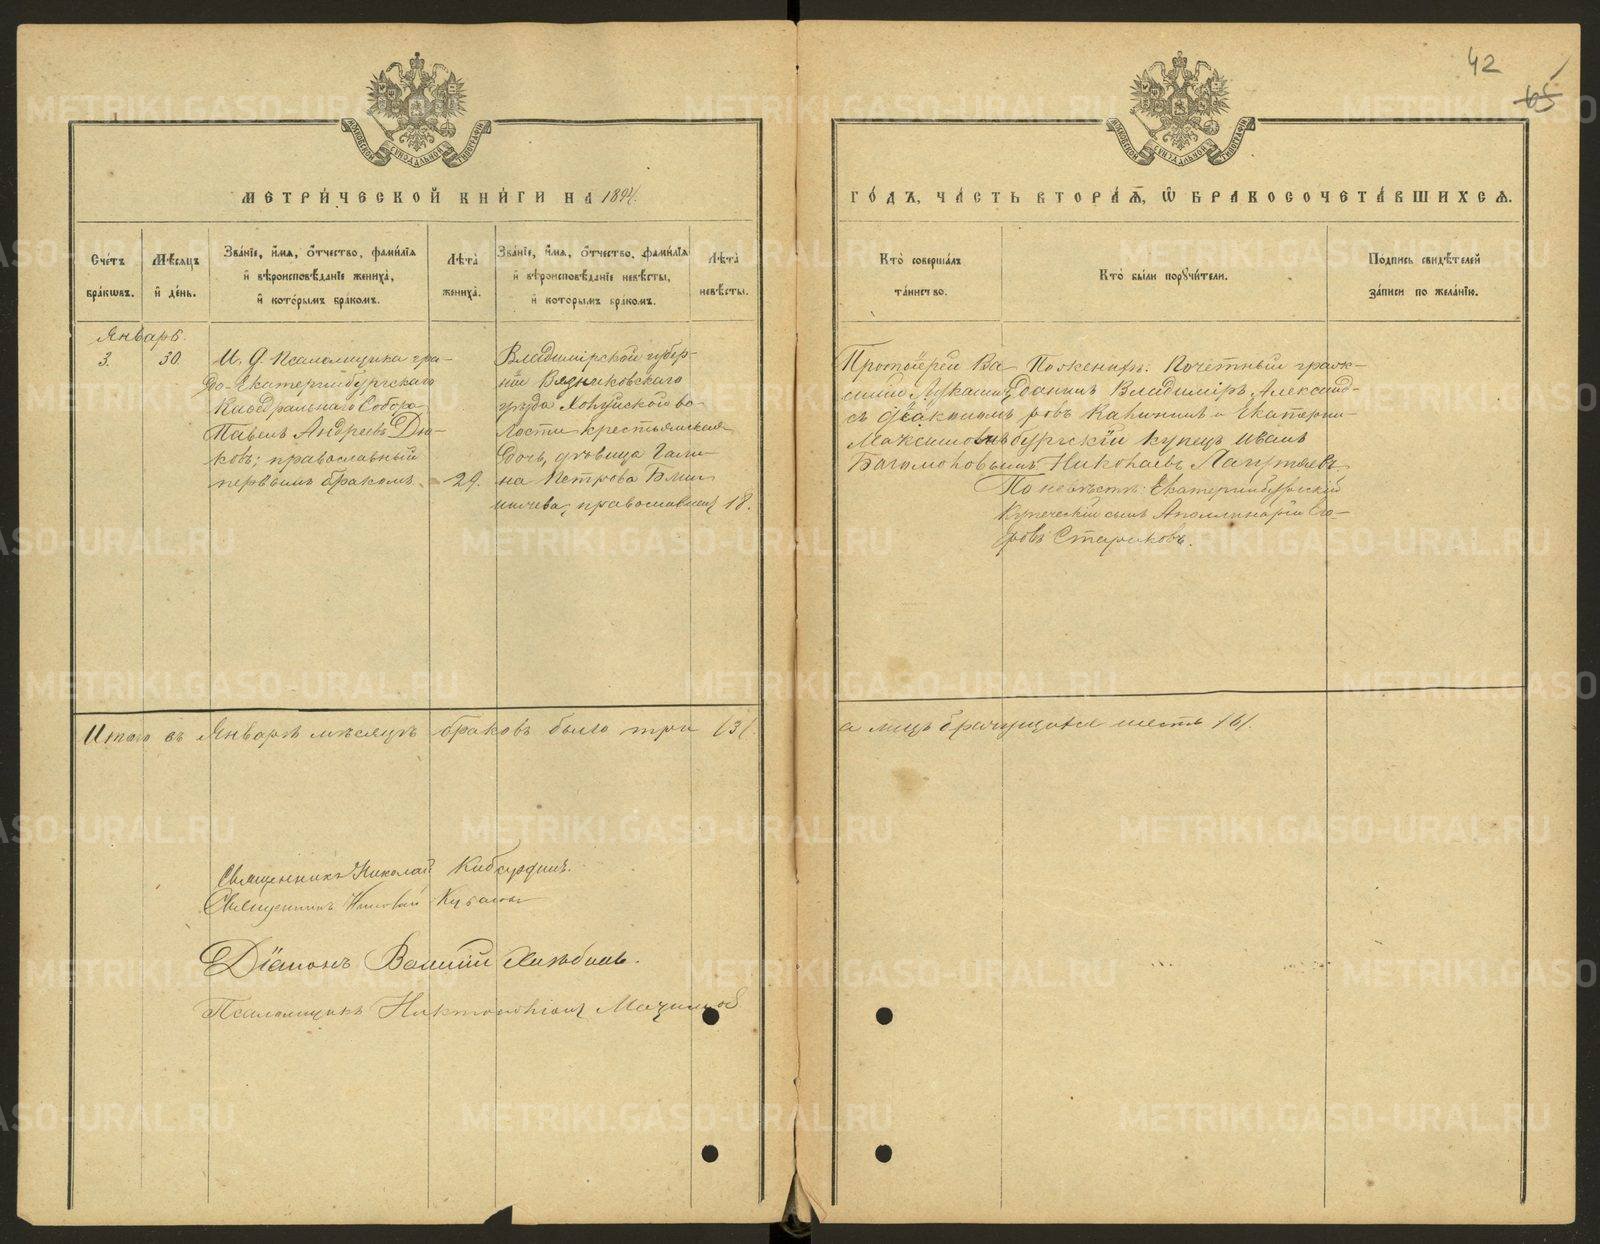 42
65
МЕТРИЧЕСКОЙ КНИГИ НА 1894.
ГОДЪ, ЧАСТЬ ВТОРАЯ, Ѡ БРАКОСОЧЕТАВШИХСЯ.
Счетъ браковъ.
Мѣсяцъ и день.
Званіе, имя, отчество, фамилія и вѣроисповѣданіе жениха, и которымъ бракомъ.
Лѣта жениха.
Званіе, имя, отчество, фамилія и вѣроисповѣданіе невѣсты, и которымъ бракомъ.
Лѣта невѣсты.
Кто совершалъ таинство.
Кто были поручители.
Подпись свидѣтелей записи по желанію.
Январь.
3. 30.
И. д. Псаломщика гра-
да Екатеринбургскаго
Каѳедральнаго Собора
Павелъ Андреевъ Дья-
ковъ; православный
первымъ бракомъ. 29.
Владимірской губер-
ніи Вязниковскаго
уѣзда Холуйской во-
лости крестьянская
дочь, дѣвица Гали-
на Петрова
православная 18.
Протоіерей Ва
силій Лукашинъ
съ діакономъ
Максимомъ
Богомоловымъ
По женихѣ: Почетный граж-
данинъ Владиміръ Александ-
ровъ Калининъ и Екатерин-
бургскій купецъ Иванъ
Николаевъ Лагутяевъ
По невѣстѣ: Екатеринбургскій
Купеческій сынъ Аполлинарій
Стариковъ.
Итого въ Январѣ мѣсяцѣ браковъ было три /3/.
а лицъ брачущихся шесть /6/.
Священникъ Николай
Священникъ
Діаконъ Василій Хлѣбинъ.
Псаломщикъ
METRIKI.GASO-URAL.RU